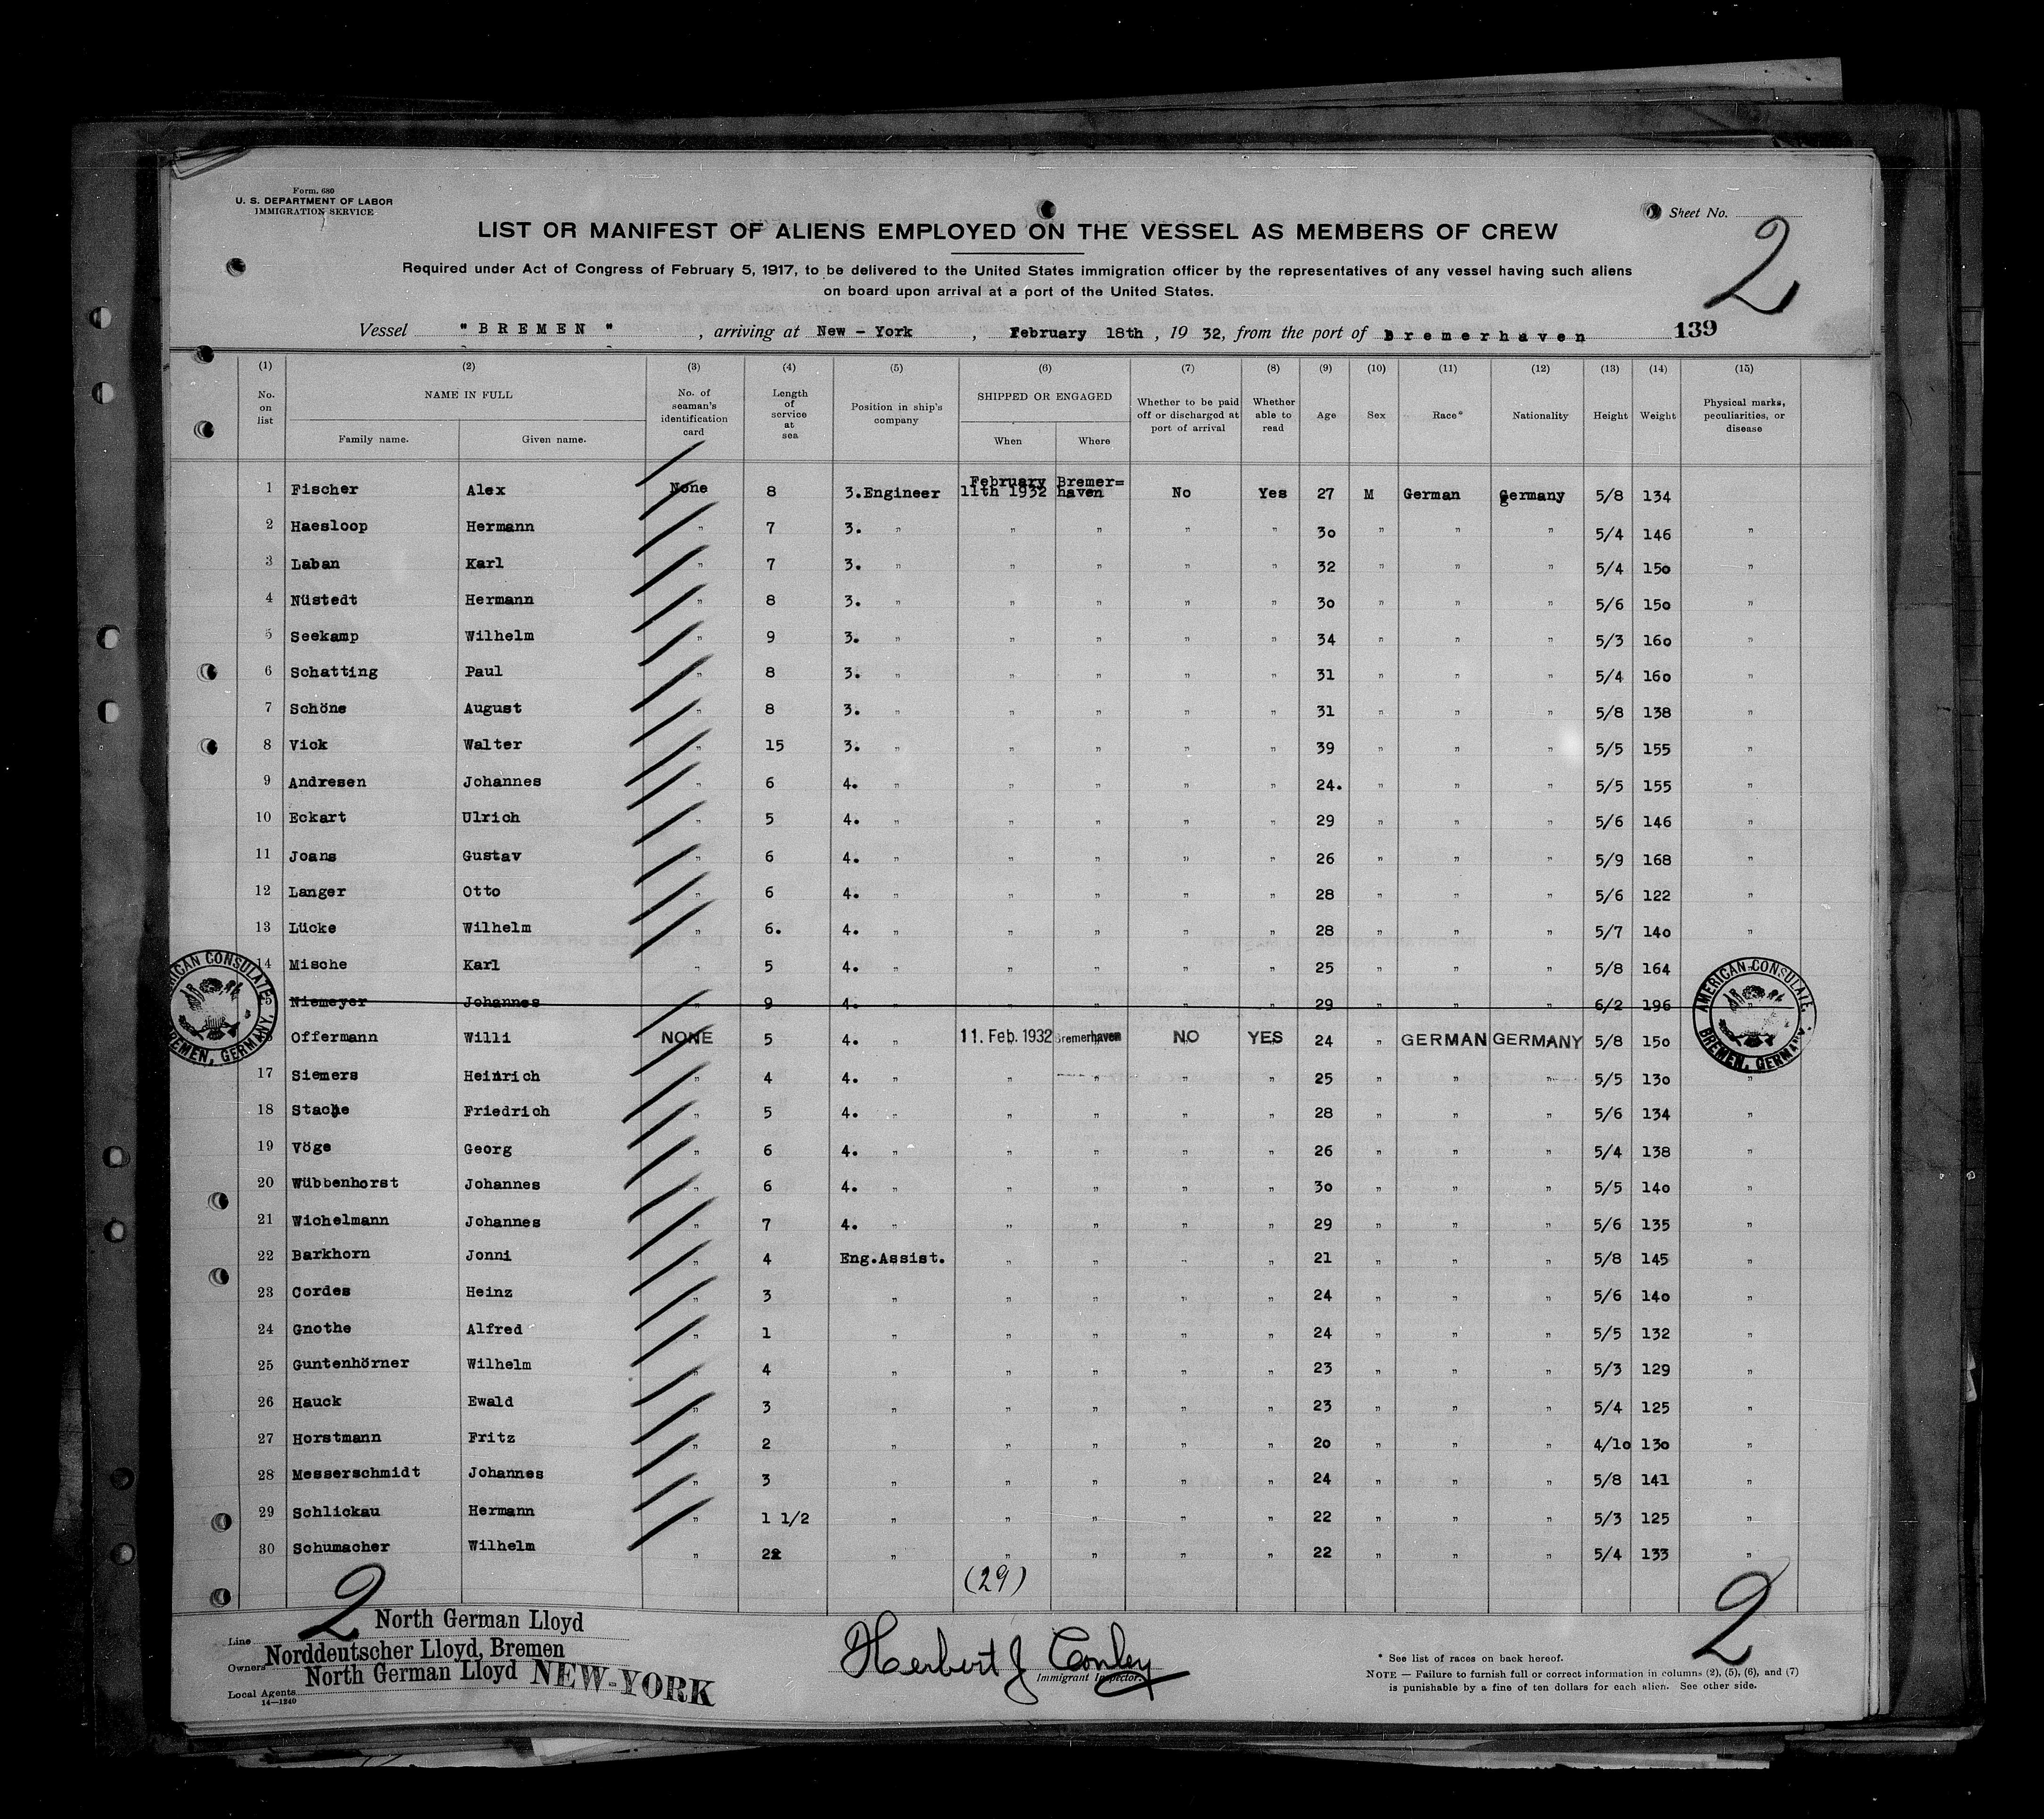 Form. 680
U. S. DEPARTMENT OF LABOR
IMMIGRATION SERVICE
Sheet No. 2
LIST OR MANIFEST OF ALIENS EMPLOYED ON THE VESSEL AS MEMBERS OF CREW
Required under Act of Congress of February 5, 1917, to be delivered to the United States immigration officer by the representatives of any vessel having such aliens
on board upon arrival at a port of the United States.
Vessel " B R E M E N " , arriving at New - York , February 18th , 19 32, from the port of Bremerhaven 139
(1) (2) (3) (4) (5) (6) (7) (8) (9) (10) (11) (12) (13) (14) (15)
No. on list NAME IN FULL Family name. Given name. No. of seaman's identification card Length of service at sea Position in ship's company SHIPPED OR ENGAGED When Where Whether to be paid off or discharged at port of arrival Whether able to read Age Sex Race* Nationality Height Weight Physical marks, peculiarities, or disease
1 Fischer Alex None 8 3.Engineer February 11th 1932 Bremer=haven No Yes 27 M German Germany 5/8 134
2 Haesloop Hermann " 7 3. " " " " " 30 " " " 5/4 146 "
3 Laban Karl " 7 3. " " " " " 32 " " " 5/4 150 "
4 Nüstedt Hermann " 8 3. " " " " " 30 " " " 5/6 150 "
5 Seekamp Wilhelm " 9 3. " " " " " 34 " " " 5/3 160 "
6 Schatting Paul " 8 3. " " " " " 31 " " " 5/4 160 "
7 Schöne August " 8 3. " " " " " 31 " " " 5/8 138 "
8 Vick Walter " 15 3. " " " " " 39 " " " 5/5 155 "
9 Andresen Johannes " 6 4. " " " " " 24. " " " 5/5 155 "
10 Eckart Ulrich " 5 4. " " " " " 29 " " " 5/6 146 "
11 Joans Gustav " 6 4. " " " " " 26 " " " 5/9 168 "
12 Langer Otto " 6 4. " " " " " 28 " " " 5/6 122 "
13 Lücke Wilhelm " 6. 4. " " " " " 28 " " " 5/7 140 "
14 Mische Karl " 5 4. " " " " " 25 " " " 5/8 164
5 Niemeyer Johannes " 9 4. " " " " " 29 " " " 6/2 196
Offermann Willi NONE 5 4. " 11. Feb. 1932 Bremerhaven NO YES 24 " GERMAN GERMANY 5/8 150
AMERICAN CONSULATE, BREMEN, GERMANY.
AMERICAN CONSULATE, BREMEN, GERMANY.
17 Siemers Heinrich " 4 4. " " " " " 25 " " " 5/5 130 "
18 Stache Friedrich " 5 4. " " " " " 28 " " " 5/6 134 "
19 Vöge Georg " 6 4. " " " " " 26 " " " 5/4 138 "
20 Wübbenhorst Johannes " 6 4. " " " " " 30 " " " 5/5 140 "
21 Wichelmann Johannes " 7 4. " " " " " 29 " " " 5/6 135 "
22 Barkhorn Jonni " 4 Eng.Assist. " " " " 21 " " " 5/8 145 "
23 Cordes Heinz " 3 " " " " " 24 " " " 5/6 140 "
24 Gnothe Alfred " 1 " " " " " 24 " " " 5/5 132 "
25 Guntenhörner Wilhelm " 4 " " " " " 23 " " " 5/3 129 "
26 Hauck Ewald " 3 " " " " " 23 " " " 5/4 125 "
27 Horstmann Fritz " 2 " " " " " 20 " " " 4/10 130 "
28 Messerschmidt Johannes " 3 " " " " " 24 " " " 5/8 141 "
29 Schlickau Hermann " 1 1/2 " " " " " 22 " " " 5/3 125 "
30 Schumacher Wilhelm " 2 " " " " " 22 " " " 5/4 133 "
(29)
2
2
Line North German Lloyd
Owners Norddeutscher Lloyd, Bremen
Local Agents North German Lloyd NEW-YORK
14—1240
Herbert J Conley
Immigrant Inspector.
* See list of races on back hereof.
NOTE — Failure to furnish full or correct information in columns (2), (5), (6), and (7)
is punishable by a fine of ten dollars for each alien. See other side.